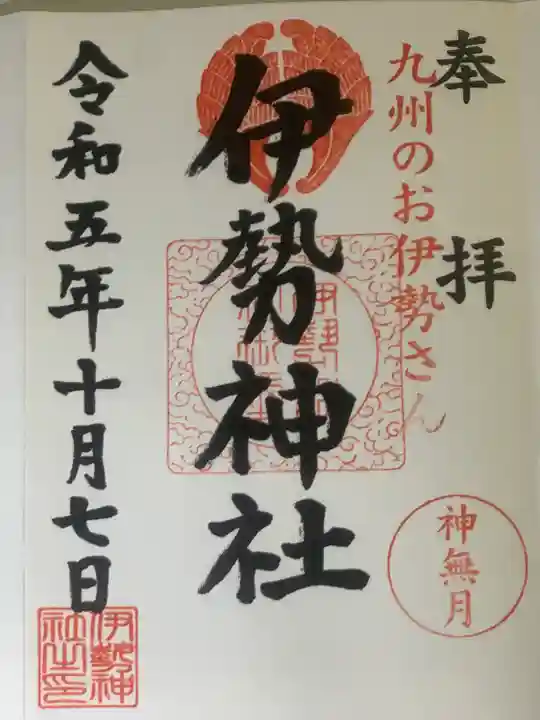 奉拝
九州のお伊勢さん
神無月
伊勢神社
令和五年十月七日
伊勢神
社之印